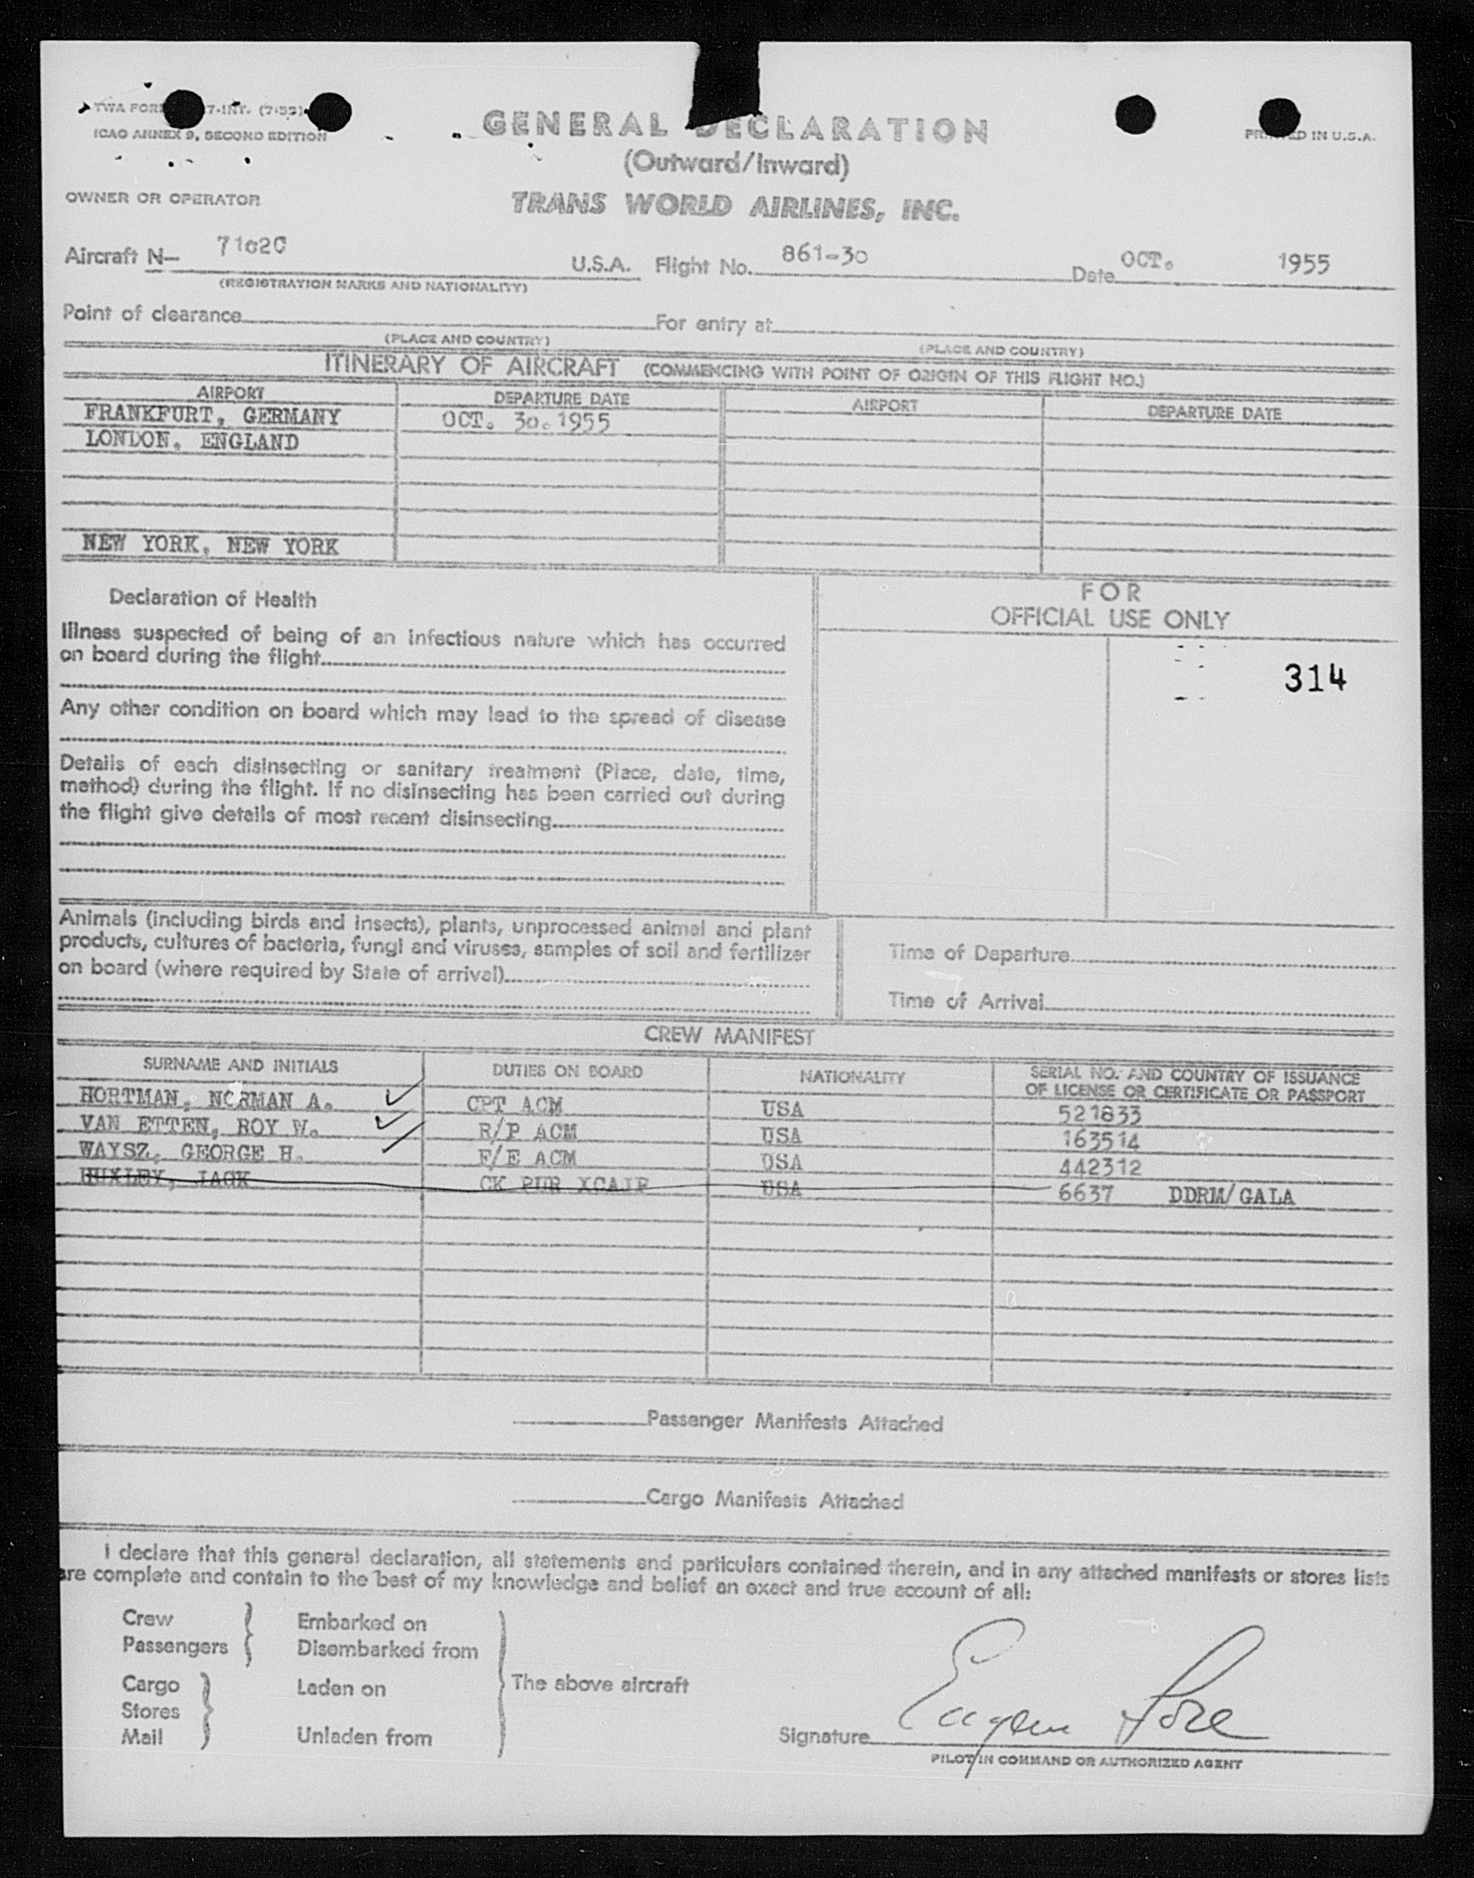 TWA FOR 7-INT. (7-55)
ICAO ANNEX 9, SECOND EDITION
GENERAL DECLARATION
PRINTED IN U.S.A.
(Outward/Inward)
OWNER OR OPERATOR
TRANS WORLD AIRLINES, INC.
Aircraft N— 7102C U.S.A. Flight No. 861-30 Date OCT. 1955
(REGISTRATION MARKS AND NATIONALITY)
Point of clearance For entry at
(PLACE AND COUNTRY) (PLACE AND COUNTRY)
ITINERARY OF AIRCRAFT (COMMENCING WITH POINT OF ORIGIN OF THIS FLIGHT NO.)
AIRPORT DEPARTURE DATE AIRPORT DEPARTURE DATE
FRANKFURT, GERMANY OCT. 30.1955
LONDON, ENGLAND
NEW YORK, NEW YORK
Declaration of Health
Illness suspected of being of an infectious nature which has occurred
on board during the flight
Any other condition on board which may lead to the spread of disease
Details of each disinsecting or sanitary treatment (Place, date, time,
method) during the flight. If no disinsecting has been carried out during
the flight give details of most recent disinsecting
FOR
OFFICIAL USE ONLY
314
Animals (including birds and insects), plants, unprocessed animal and plant
products, cultures of bacteria, fungi and viruses, samples of soil and fertilizer
on board (where required by State of arrival)
Time of Departure
Time of Arrival
CREW MANIFEST
SURNAME AND INITIALS DUTIES ON BOARD NATIONALITY SERIAL NO. AND COUNTRY OF ISSUANCE
OF LICENSE OR CERTIFICATE OR PASSPORT
HORTMAN, NORMAN A. CPT ACM USA 521833
VAN ETTEN, ROY W. R/P ACM USA 163514
WAYSZ, GEORGE H. F/E ACM USA 442312
HUXLEY, JACK CK PUR XCAIR USA 6637 DDRM/GALA
Passenger Manifests Attached
Cargo Manifests Attached
I declare that this general declaration, all statements and particulars contained therein, and in any attached manifests or stores lists
are complete and contain to the best of my knowledge and belief an exact and true account of all:
Crew
Passengers
Embarked on
Disembarked from
Cargo
Stores
Mail
Laden on
Unladen from
The above aircraft
Signature
PILOT IN COMMAND OR AUTHORIZED AGENT